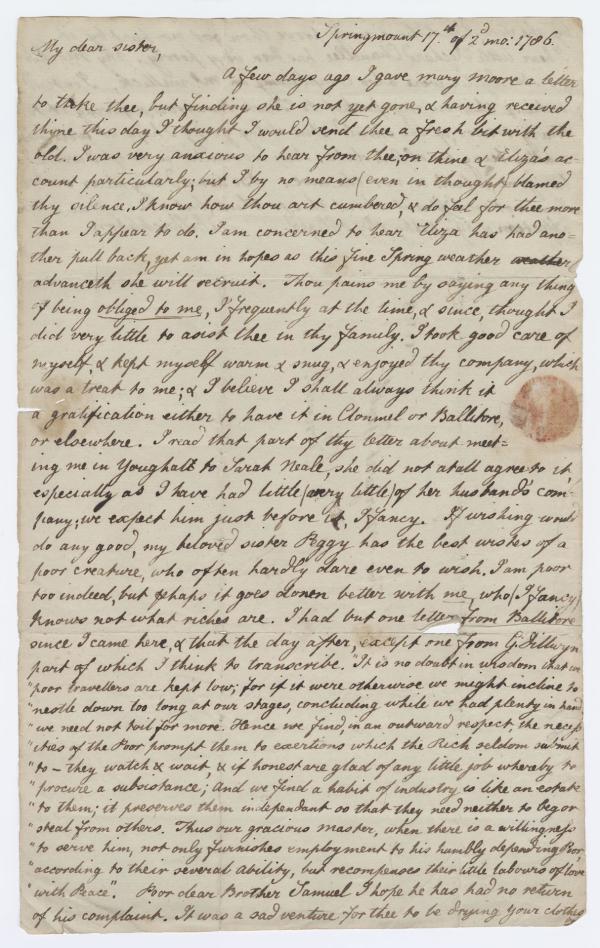 Springmount 17.th of 2d mo: 1786.
My dear sister,
A few days ago I gave mary moore a letter
to take thee, but finding she is not yet gone, & having received
thine this day I thought I would send thee a fresh bit with the
old. I was very anxious to hear from thee, on thine & Eliza's ac=
count particularly; but I by no means (even in thought) blamed
thy silence. I know how thou art cumbered, & do feel for thee more
than I appear to do. I am concerned to hear Eliza has had ano=
ther pull back, yet am in hopes as this fine Spring weather weather
advanceth she will recruit. Thou pains me by saying any thing
of being obliged to me, I frequently at the time, & since, thought I
did very little to asist thee in thy family. I took good care of
myself, & kept myself warm & snug, & enjoyed thy company, which
was a treat to me; & I believe I shall always think it
a gratification either to have it in Clonmel or Ballitore,
or elsewhere. I read that part of thy letter about meet=
ing me in Youghall to Sarah Neale, she did not atall agree to it
especially as I have had little (very little) of her husband's com=
pany; we expect him just before it, I fancy. If wishing would
do any good, my beloved sister Peggy has the best wishes of a
poor creature, who often hardly dare even to wish. I am poor
too indeed, but phaps it goes down better with me, who (I fancy)
knows not what riches are. I had but one letter from Ballitore
since I came here, & that the day after, except one from G: Dillwyn
part of which I think to transcribe. "It is no doubt in wisdom that we
"poor travellers are kept low; for if it were otherwise we might incline to
"nestle down too long at our stages, concluding while we had plenty in hand
"we need not toil for more. Hence we find, in an outward respect, the necess
"ities of the Poor prompt them to exertions which the Rich seldom submit
"to - they watch & wait, & if honest are glad of any little job whereby to
"procure a subsistance; and we find a habit of industry is like an estate
"to them; it preserves them independant so that they need neither to beg or
"steal from others. Thus our gracious master, when there is a willingness
"to serve him, not only furnishes employment to his humbly depending Poor,
"according to their several ability, but recompenses their little labours of love
"with Peace". Poor dear Brother Samuel I hope he has had no return
of his complaint. It was a sad venture for thee to be drying your clothes